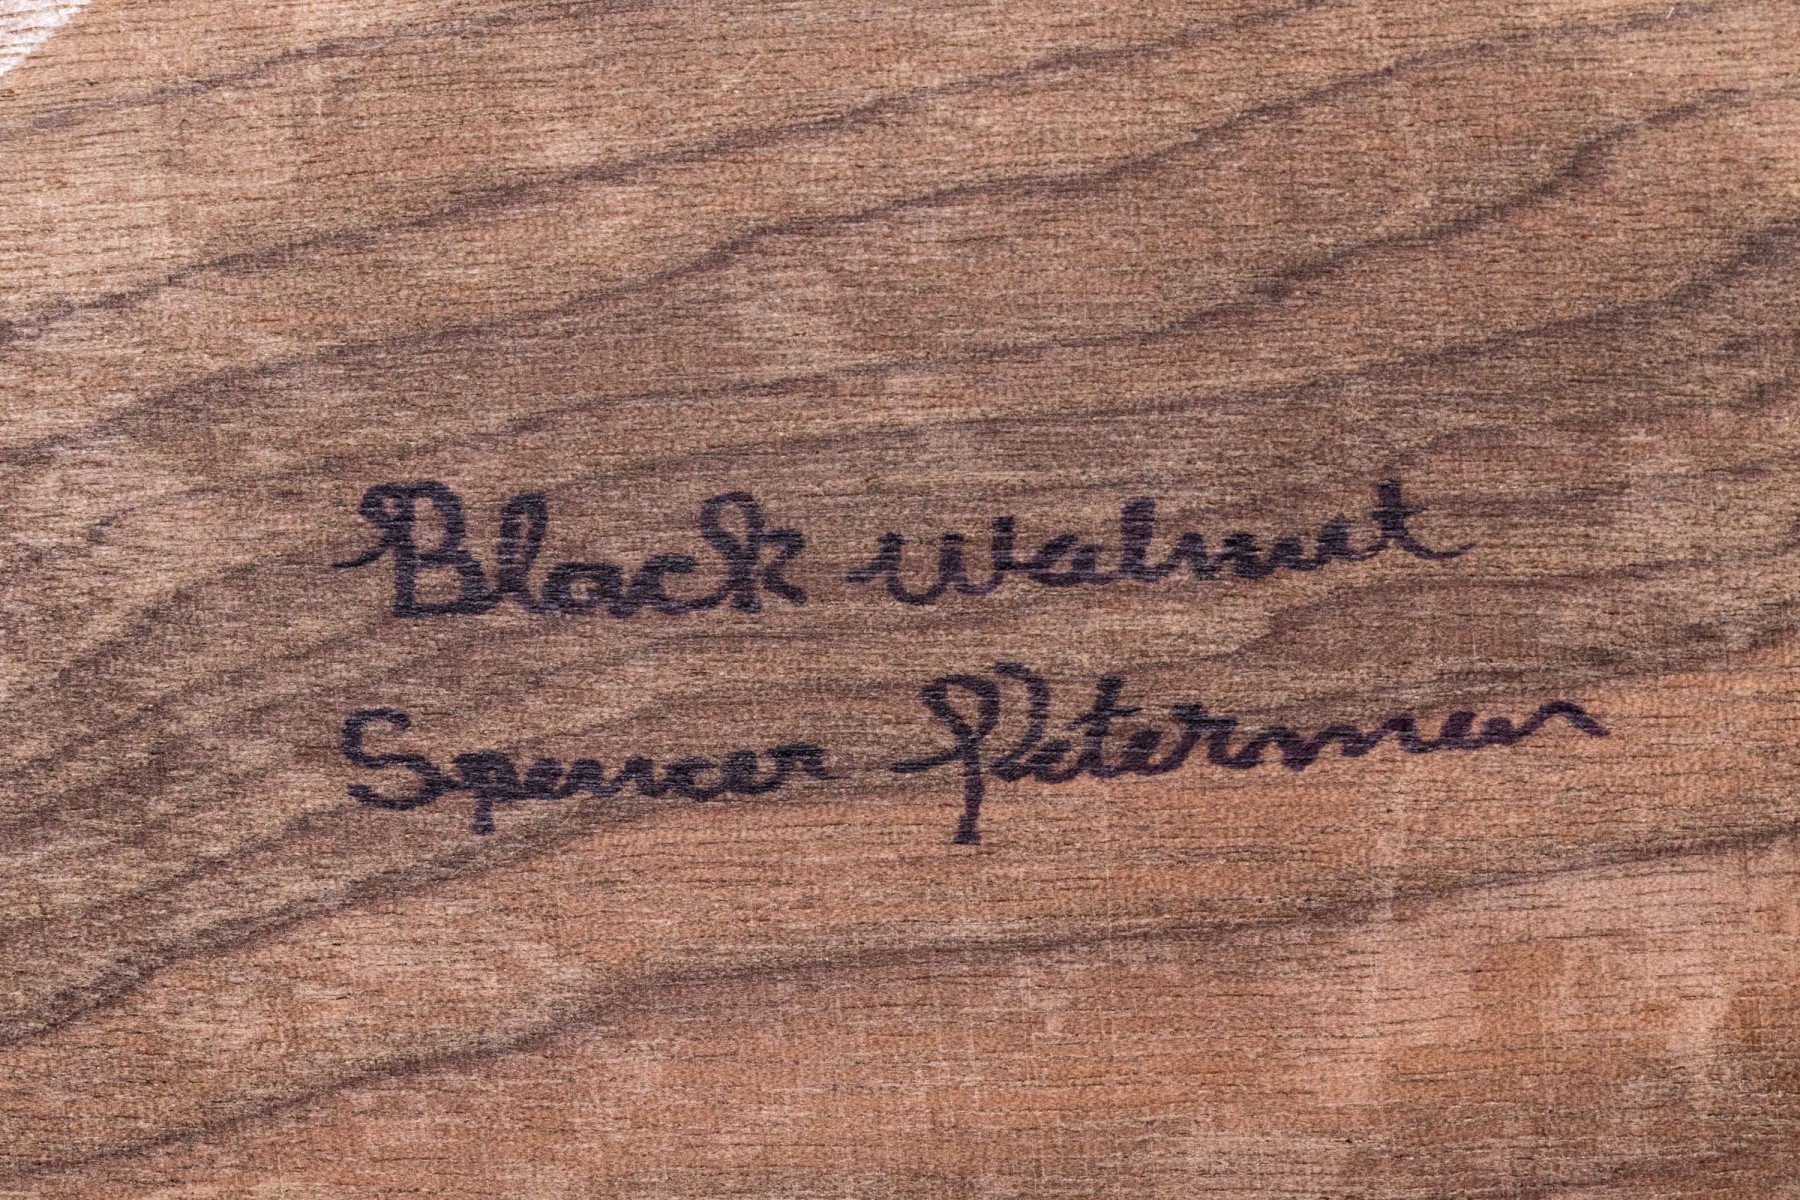 Black walnut
Spencer Peterman